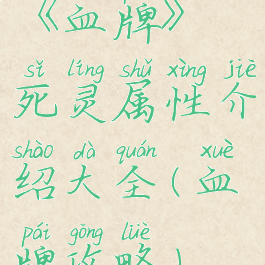 《血牌》
sǐ líng shǔ xìng jiè
死灵属性介
shào dà quán xuè
绍大全(血
pái gōng lüè
牌攻略)